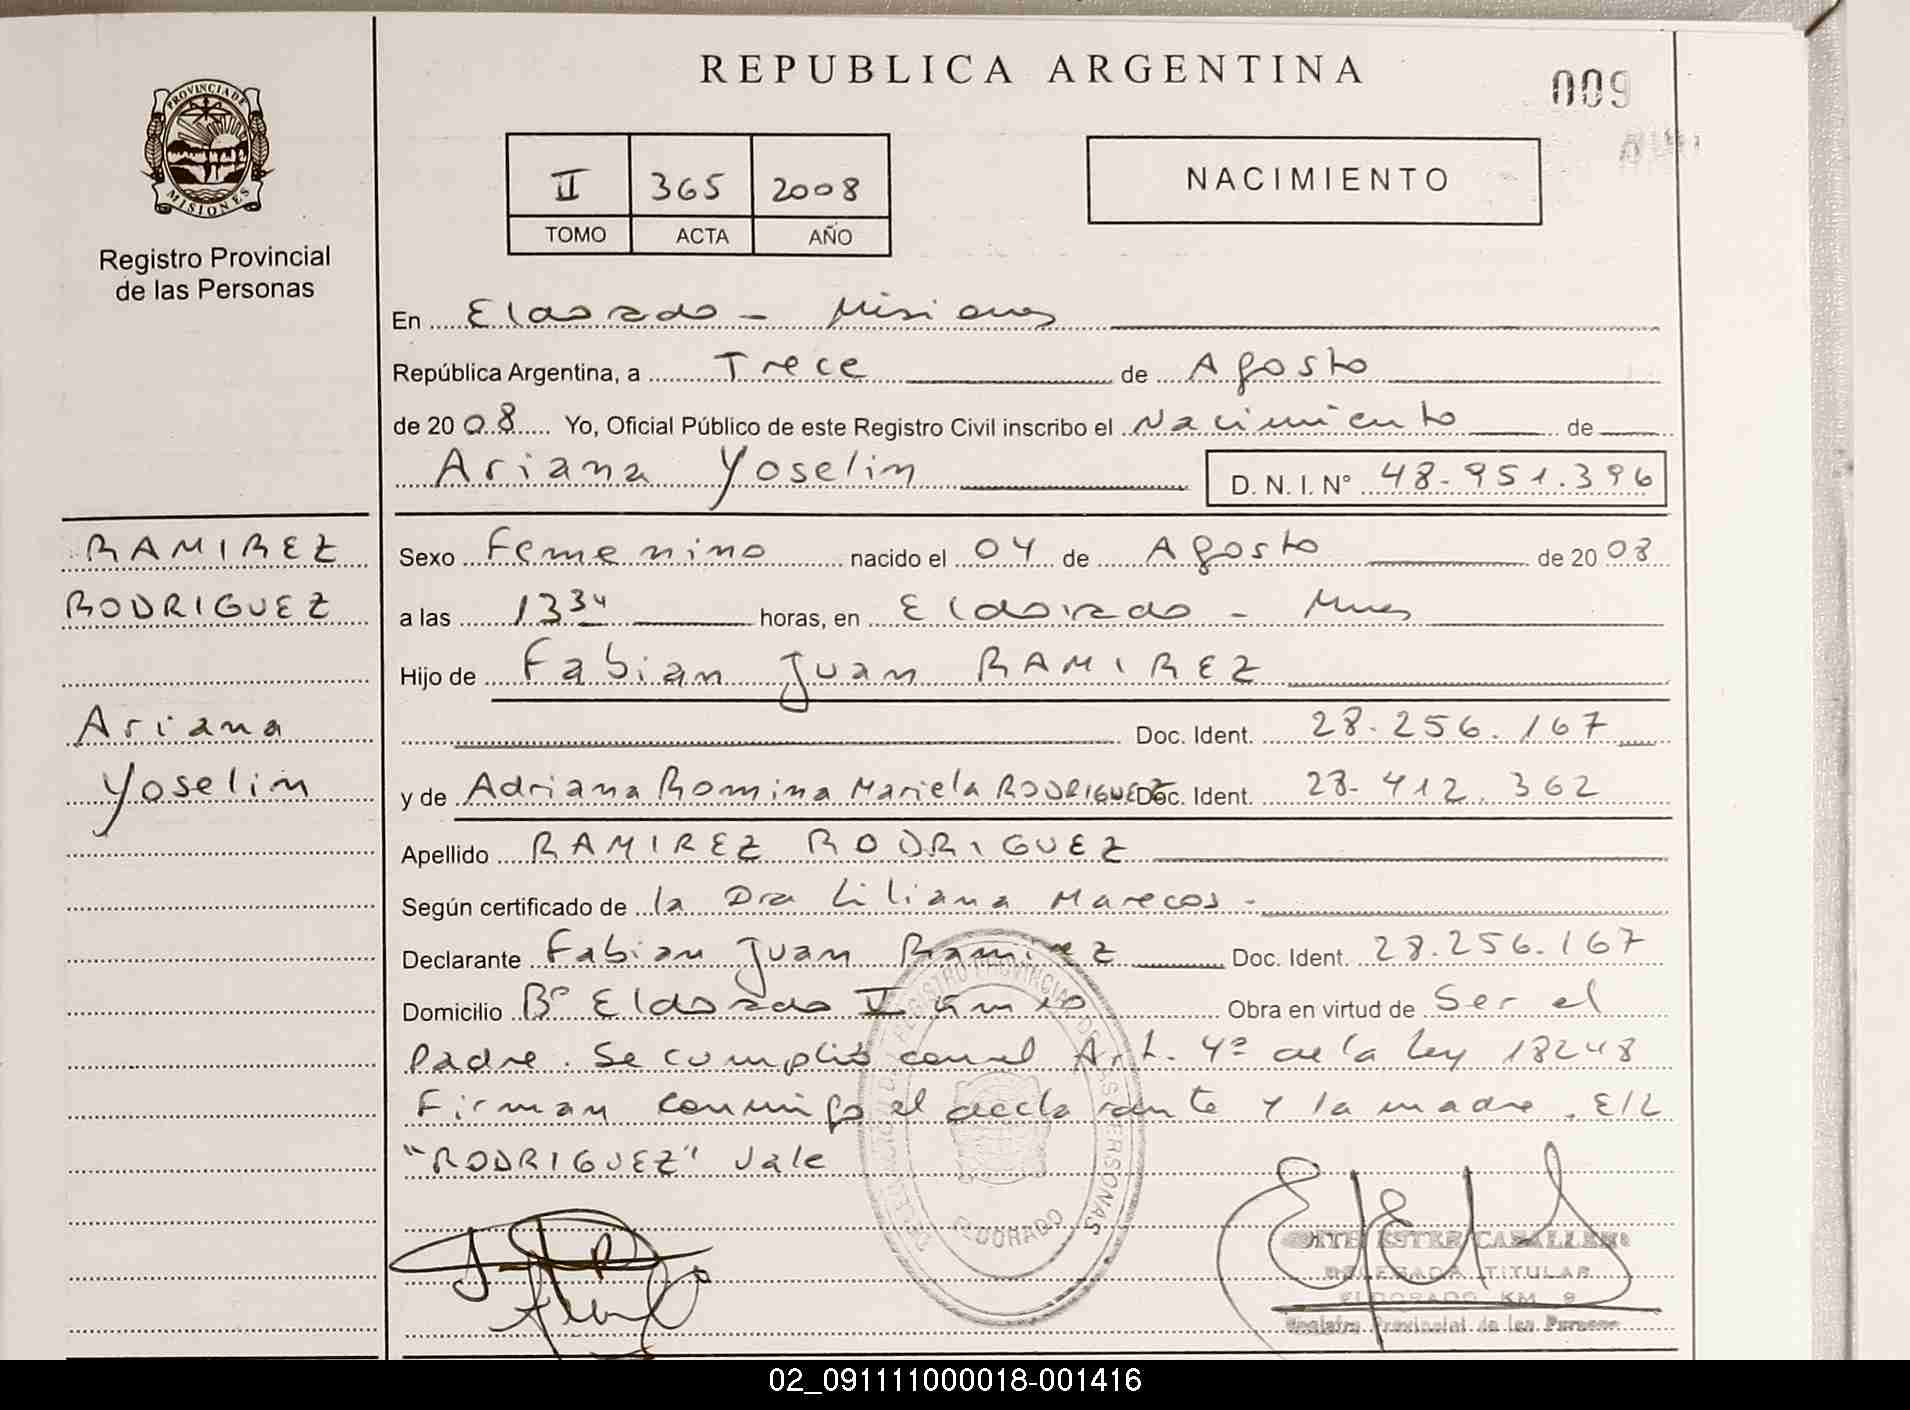 REPUBLICA ARGENTINA
009
PROVINCIA DE
MISIONES
Registro Provincial
de las Personas
II 365 2008
TOMO ACTA AÑO
NACIMIENTO
En Eldorado - Misiones
República Argentina, a Trece de Agosto
de 2008 Yo, Oficial Público de este Registro Civil inscribo el Nacimiento de
Ariana Yoselin D. N. I. N° 48.951.396
RAMIREZ
RODRIGUEZ
Ariana
Yoselin
Sexo Femenino nacido el 04 de Agosto de 2008
a las 13 34 horas, en Eldorado - Mnes
Hijo de Fabian Juan RAMIREZ
Doc. Ident. 28.256.167
y de Adriana Romina Mariela RODRIGUEZ Doc. Ident. 28.412.362
Apellido RAMIREZ RODRIGUEZ
Según certificado de la Dra Liliana Marecos -
Declarante Fabian Juan Ramirez Doc. Ident. 28.256.167
Domicilio B° Eldorado V Obra en virtud de Ser el
Padre. Se cumplió con el Art. 4° de la Ley 18248
Firman conmigo el declarante y la madre. E/L
"RODRIGUEZ" Vale
REGISTRO PROVINCIAL DE LAS PERSONAS
ELDORADO
ESTER
DELEGADA TITULAR
ELDORADO KM 9
Registro Provincial de las Personas
02_091111000018-001416